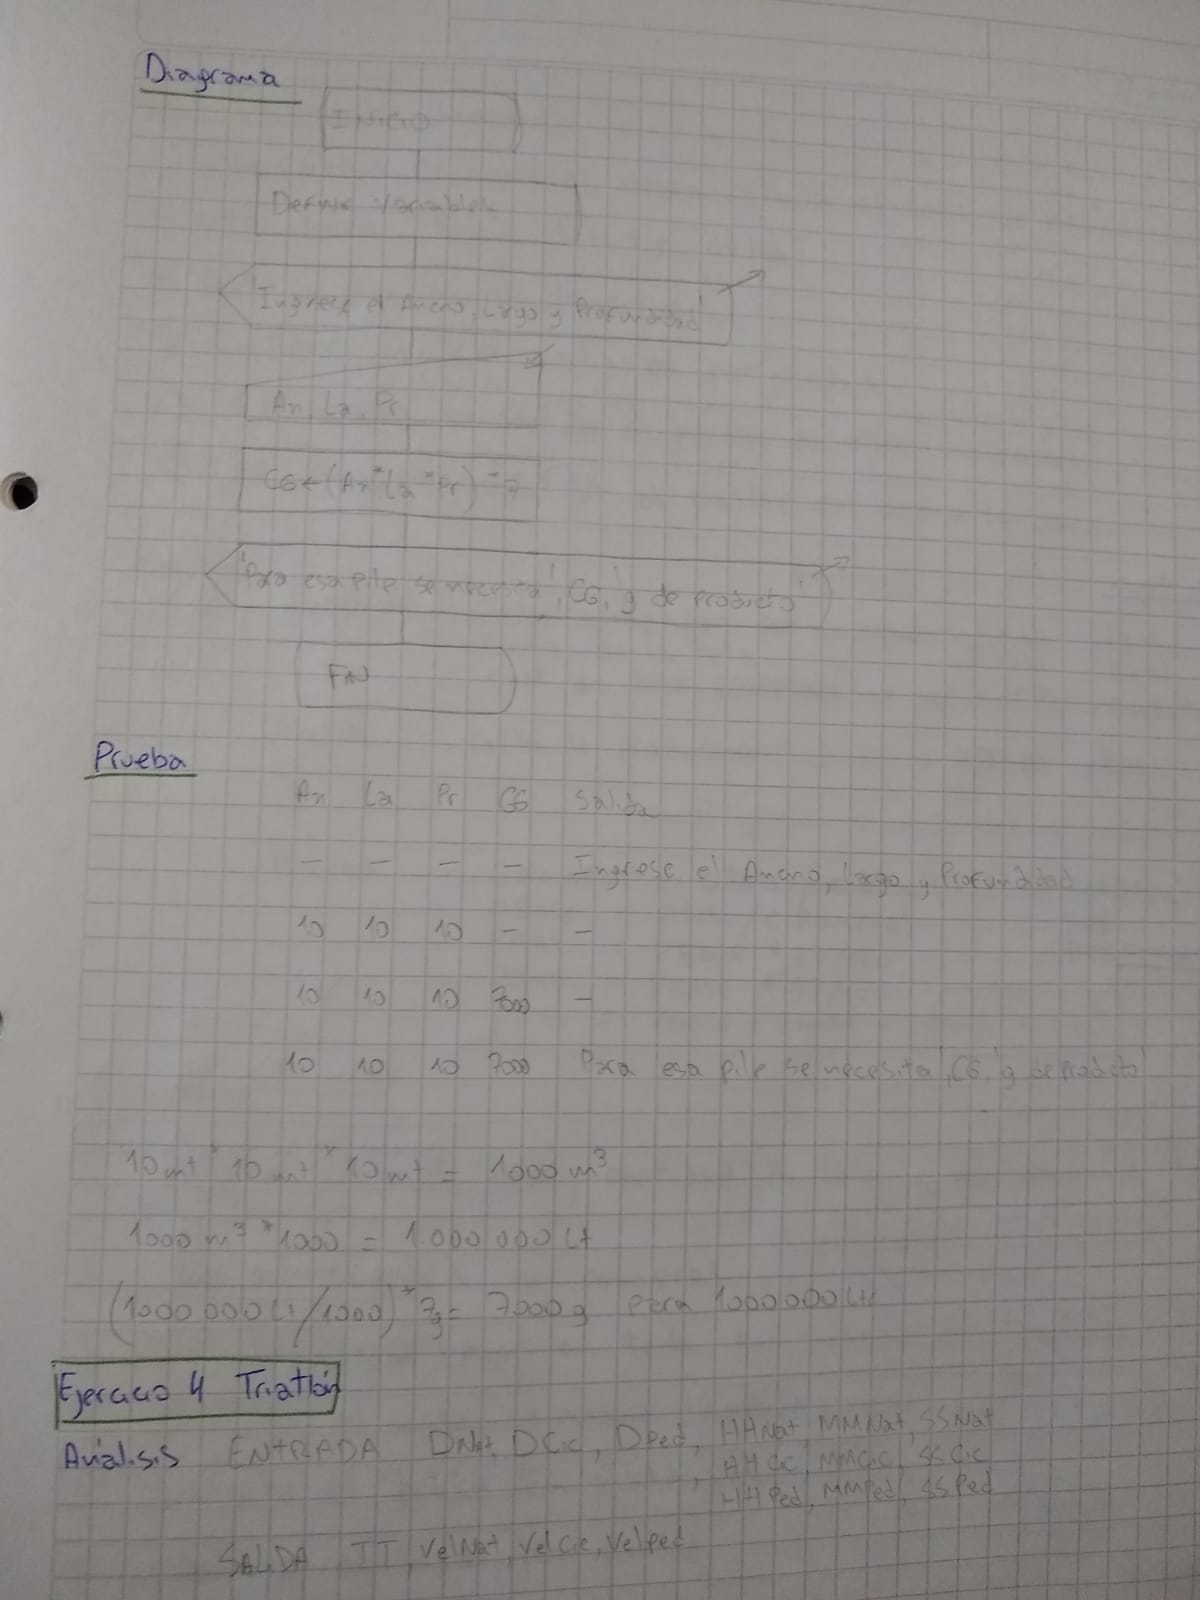 Diagrama
INICIO
Definir variables
'Ingrese el Ancho, Largo y Profundidad'
An, La, Pr
CG ← (An * La * Pr) * 7
'Para esa pile se necesita', CG, 'g de producto'
FIN
Prueba
An La Pr CG Salida
— — — — Ingrese el Ancho, Largo y Profundidad
10 10 10 — —
10 10 10 7000 —
10 10 10 7000 Para esa pile se necesita', CG, 'g de producto
10mt * 10mt * 10mt = 1000 m³
1000 m³ * 1000 = 1.000 000 Lt
(1000 000 Lt/1000) * 7g = 7000 g para 1000 000 Lt
Ejercicio 4 Triatlón
Análisis ENTRADA DNat, DCic, DPed, HHNat, MMNat, SSNat
, HHCic, MMCic, SSCic
HHPed, MMPed, SSPed
SALIDA TT, VelNat, VelCic, VelPed